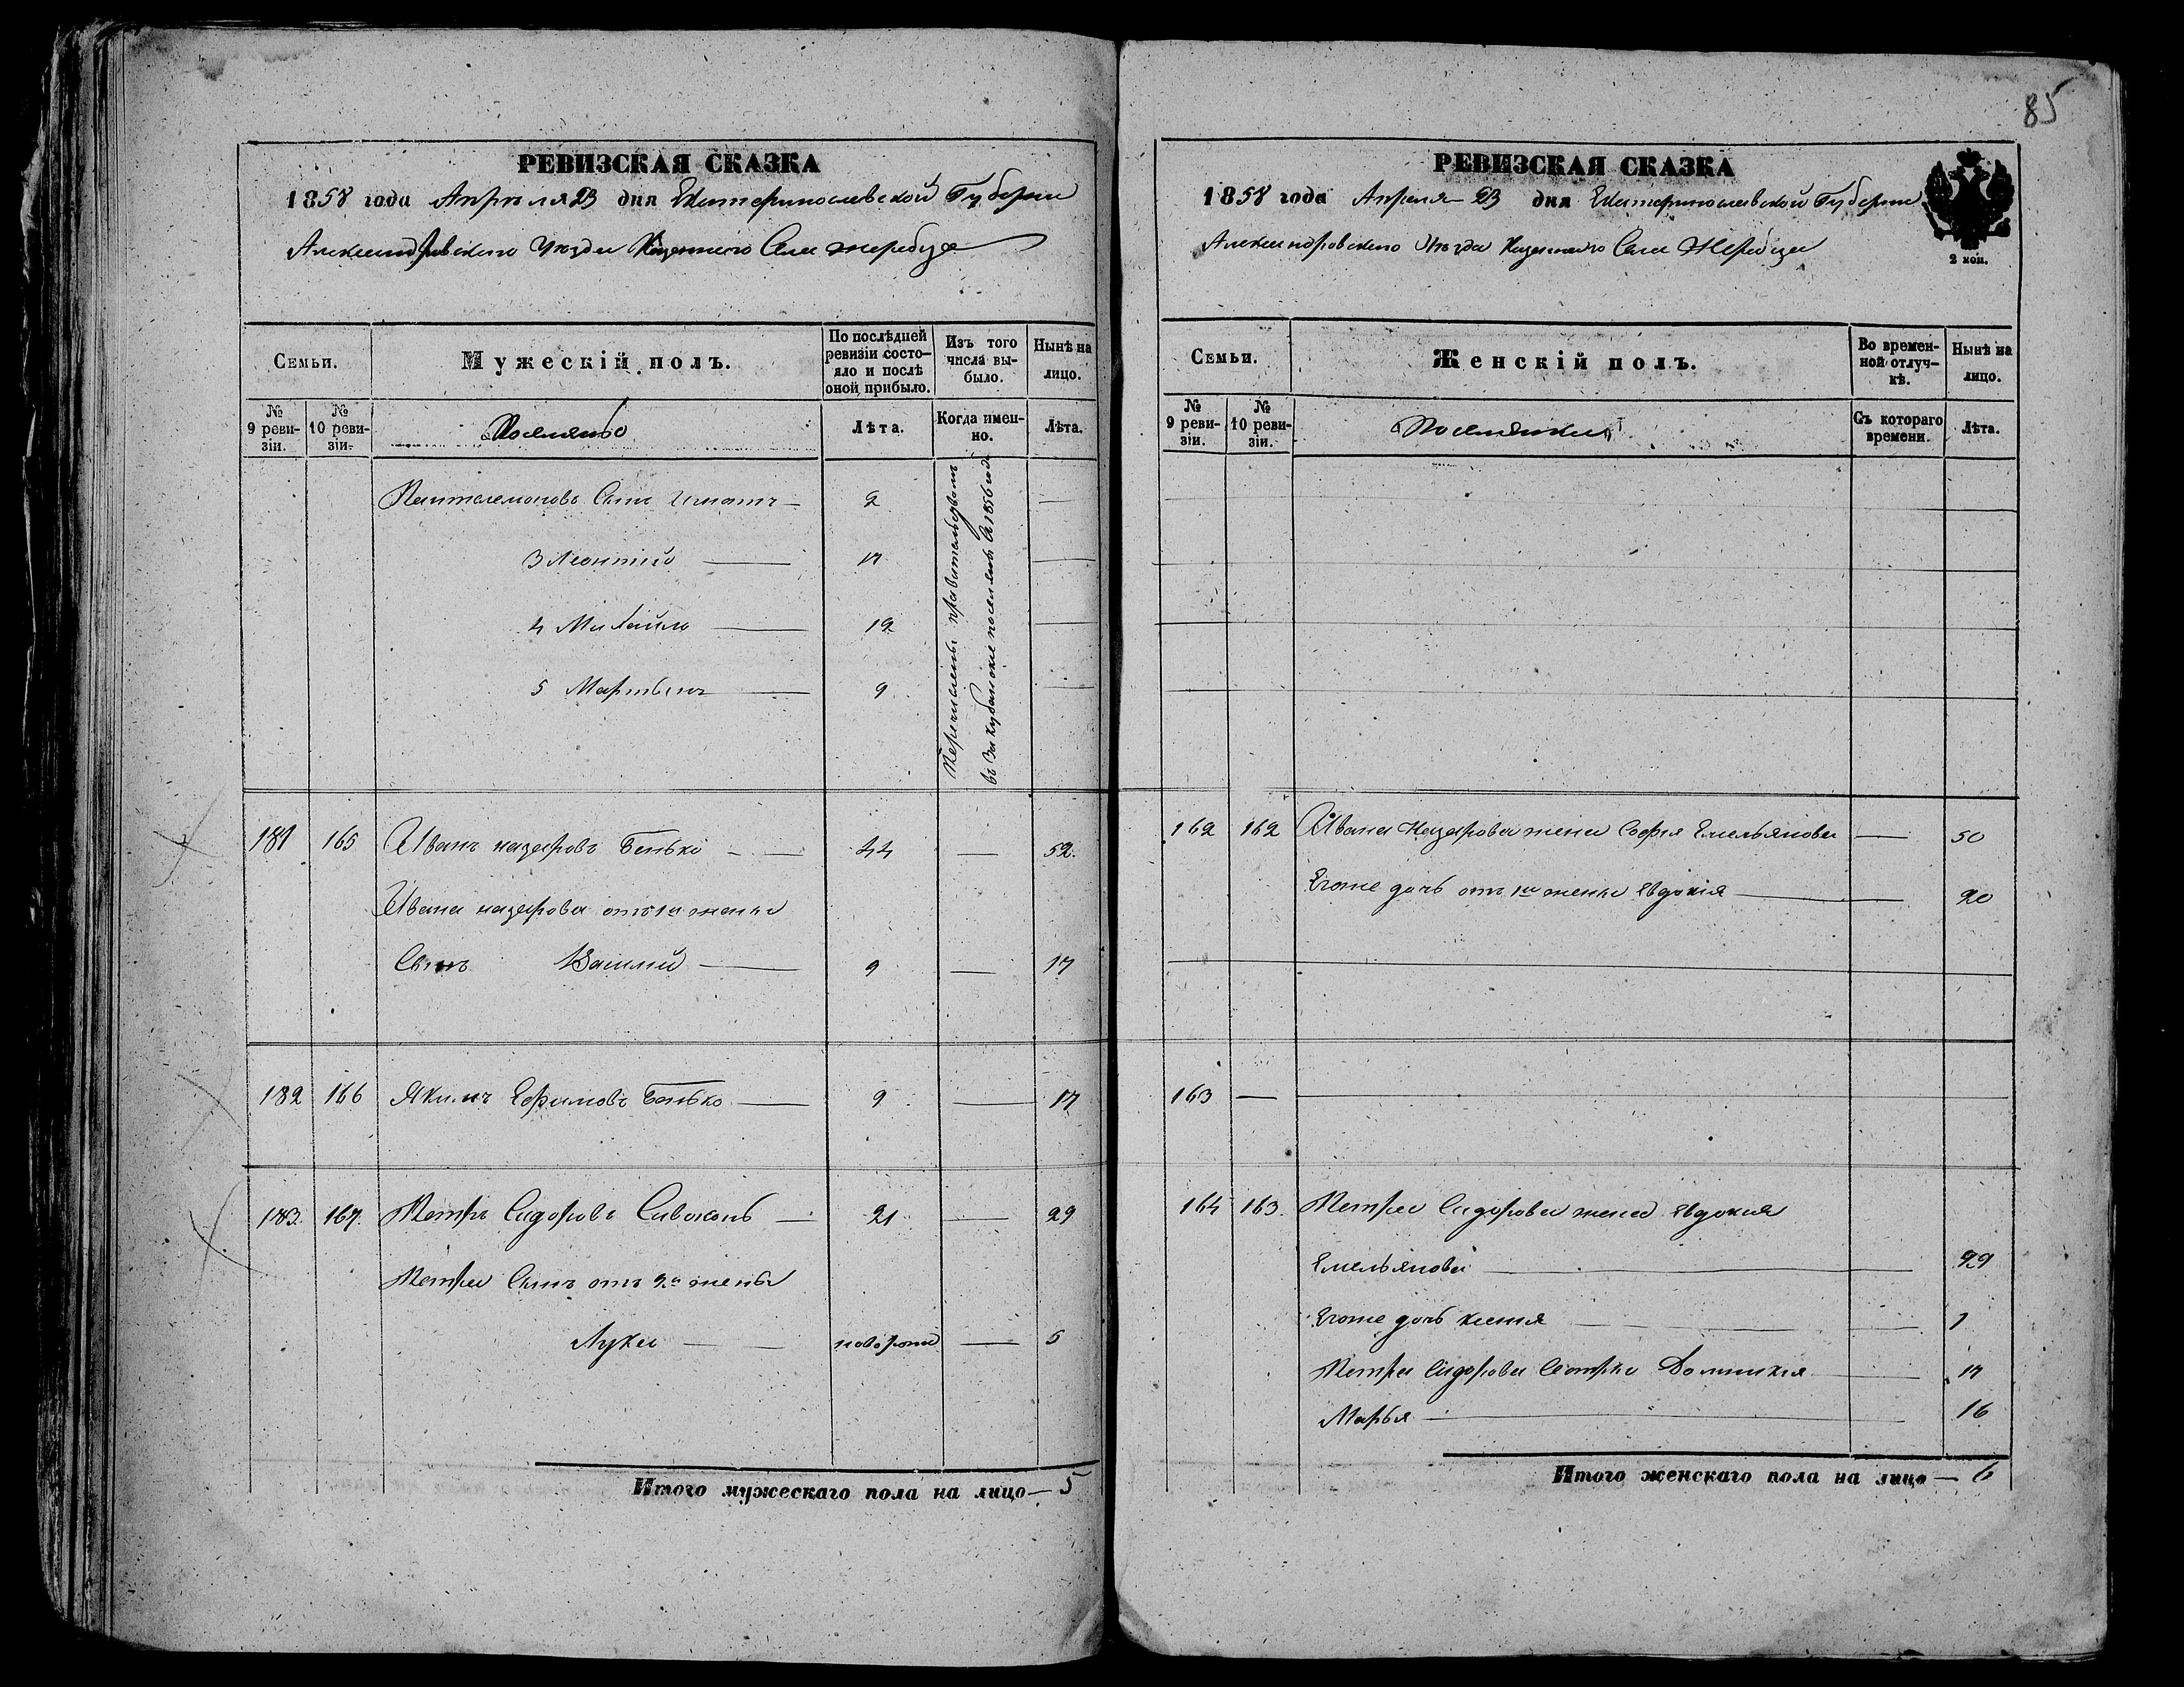 85
РЕВИЗСКАЯ СКАЗКА
1858 года Апреля 23 дня Екатеринославской Губернии
Александровскаго Уѣзда Казеннаго Села Жеребца
Семьи.
Мужескій полъ.
По послѣдней ревизіи состояло и послѣ оной прибыло.
Изъ того числа выбыло.
Нынѣ на лицо.
№ 9 ревизіи.
№ 10 ревизіи.
Поселянъ
Лѣта.
Когда именно.
Лѣта.
Пантелемоновъ Сынъ Игнатъ — 2 —
3 Леонтій — 17 —
4 Михайло — 12 —
5 Мартынъ — 9 —
Перечислены правительствомъ
въ 1856 годѣ
181 165 Иванъ Назаровъ Бенько — 44 — 52.
Ивана Назарова отъ 1й жены
Сынъ Василий — 9 — 17
182 166 Якимъ Ефимовъ Бенько — 9 — 17
183. 167. Петръ Сидоровъ Сивоконь — 21 — 29
Петра Сынъ отъ 2й жены
Лука — новорожд — 5
Итого мужескаго пола на лицо — 5
РЕВИЗСКАЯ СКАЗКА
1858 года Апреля 23 дня Екатеринославской Губернии
Александровскаго Уѣзда Казеннаго Села Жеребца
2 коп.
Семьи.
Женскій полъ.
Во временной отлучкѣ.
Нынѣ на лицо.
№ 9 ревизіи.
№ 10 ревизіи.
Поселянки
Съ котораго времени.
Лѣта.
162 162 Ивана Назарова жена Софія Емельянова — 50
Егоже дочь отъ 1й жены Евдокія — 20
163 —
164 163. Петра Сидорова жена Евдокия
Емельянова — 29
Егоже дочь Ксенія — 1
Петра Сидорова Сестры Домникія — 17
Марья — 16
Итого женскаго пола на лицо — 6